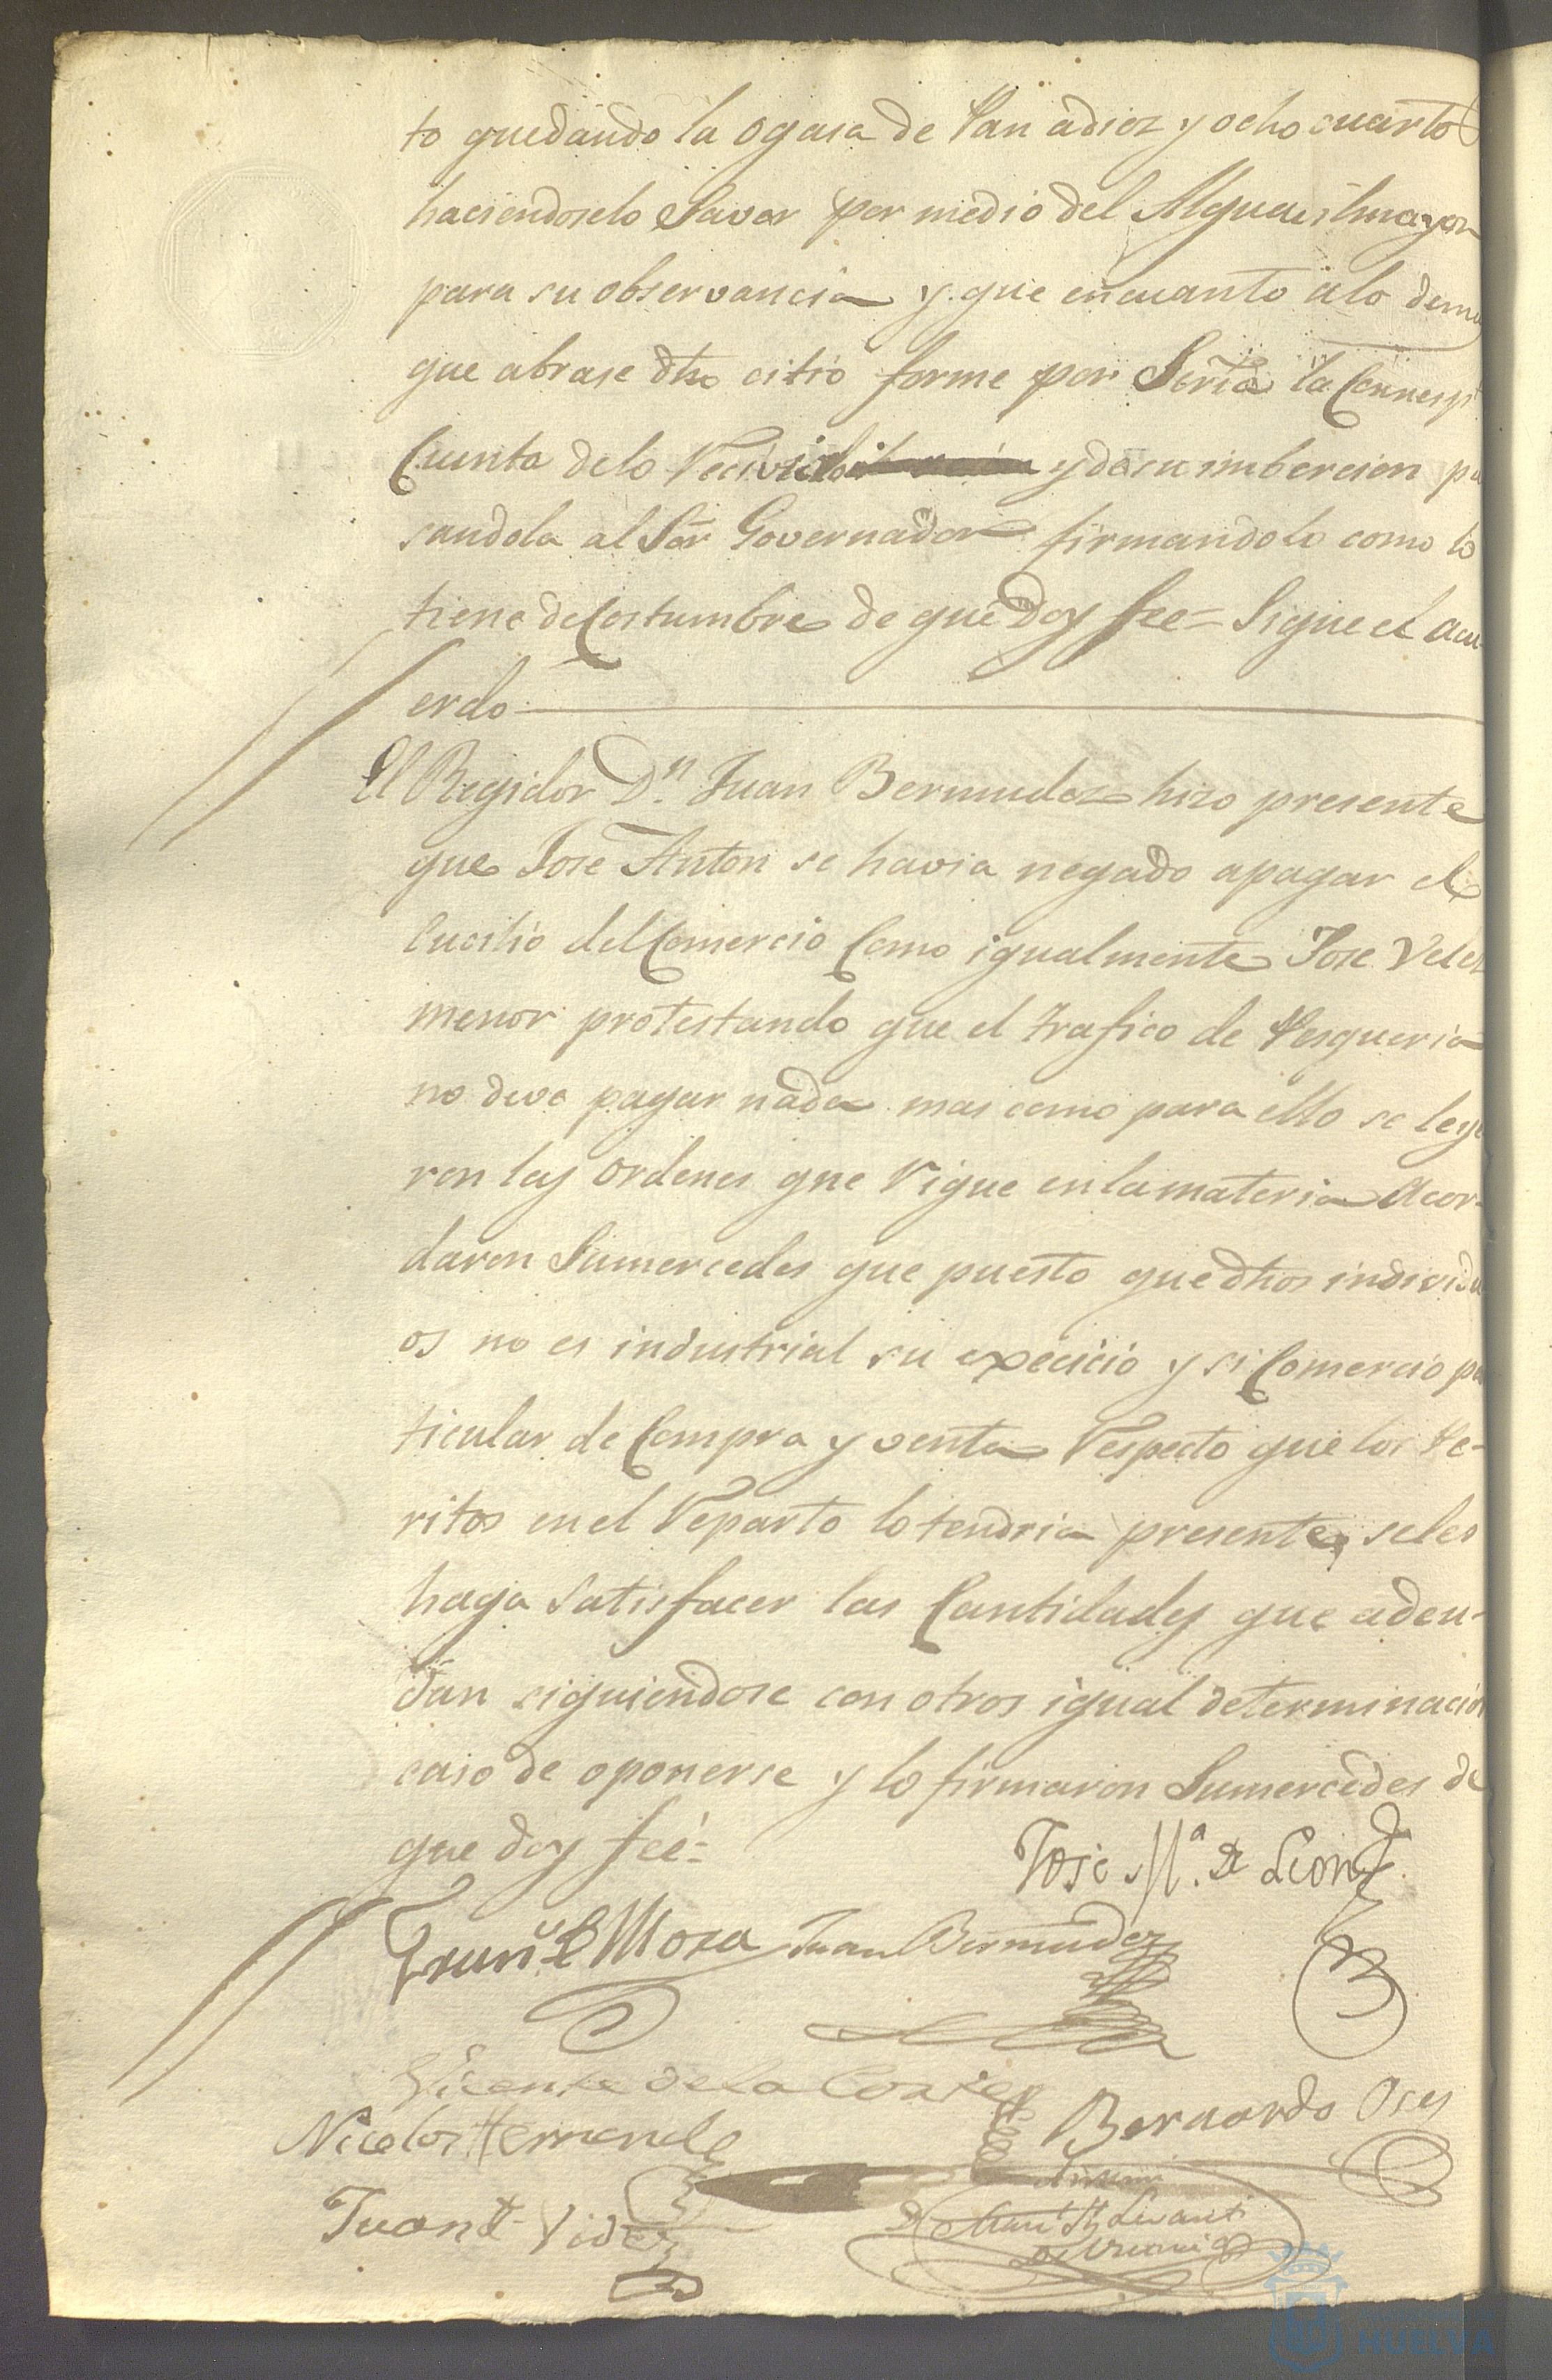 to quedando la ogasa de Pan adiez y ocho cuartos
haciendoselo Saver por medio del Alguacilmayor
para su observancia y que encuanto alo demas
que abrase dho citio forme por Seria la Corresp
Cuenta delo Recivido y de su imbercion pa
sandola al Sor Governador firmandolo como lo
tiene deCostumbre de que Doy fee = Sigue el acu
erdo
El Regidor Dn. Juan Bermudez hizo presente
que Jose Anton se havia negado apagar el
delComercio Como igualmente Jose Velez
menor protestando que el trafico de Pesqueria
no deve pagar nada mas como para ello se leye
ron las ordenes que Rigue enlamateria Acor-
daron Sumercedes que puesto que dhos individu
os no es industrial su execicio y si Comercio pa
ticular de Compra y venta Respecto que los Pe-
ritos en el Reparto lo tendria presente, seles
haga satisfacer las Cantidades que adeu-
dan siguiendose con otros igual determinacion
caso de oponerse y lo firmaron Sumercedes de
que doy feé =
Jose Ma. de Leon
Mora Juan Bermudez
Vicente de la Corte
Bernardo
Nicolas Hernande
Juan